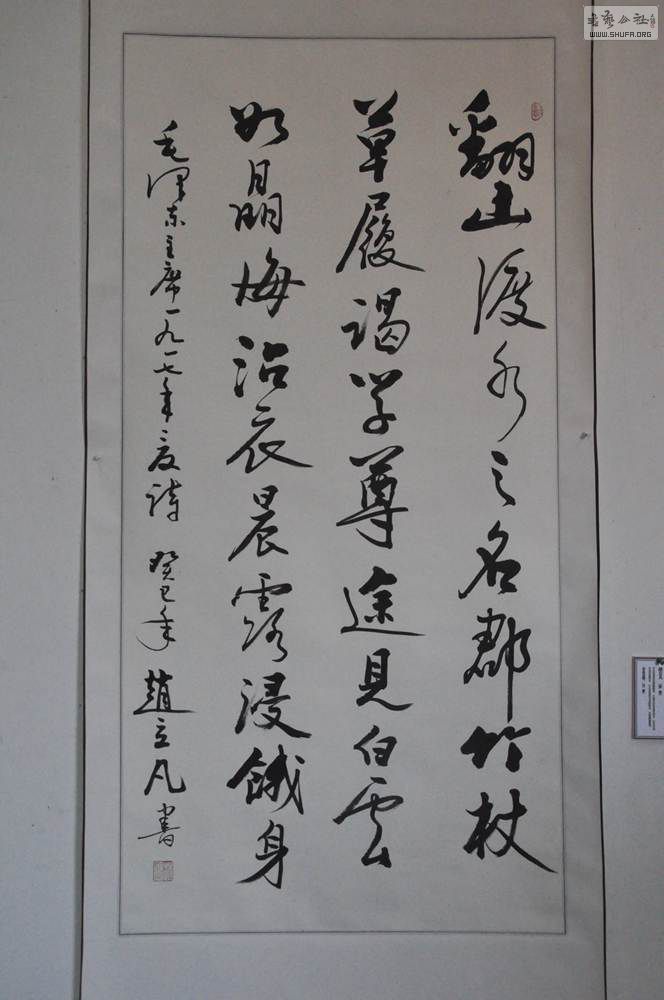 翻山渡水之名郡竹杖
草履谒学尊途見白雲
如晶海沾衣晨露浸餓身
毛泽东主席一九一七年夏诗 癸巳年 趙立凡書
书艺公社
WWW.SHUFA.ORG